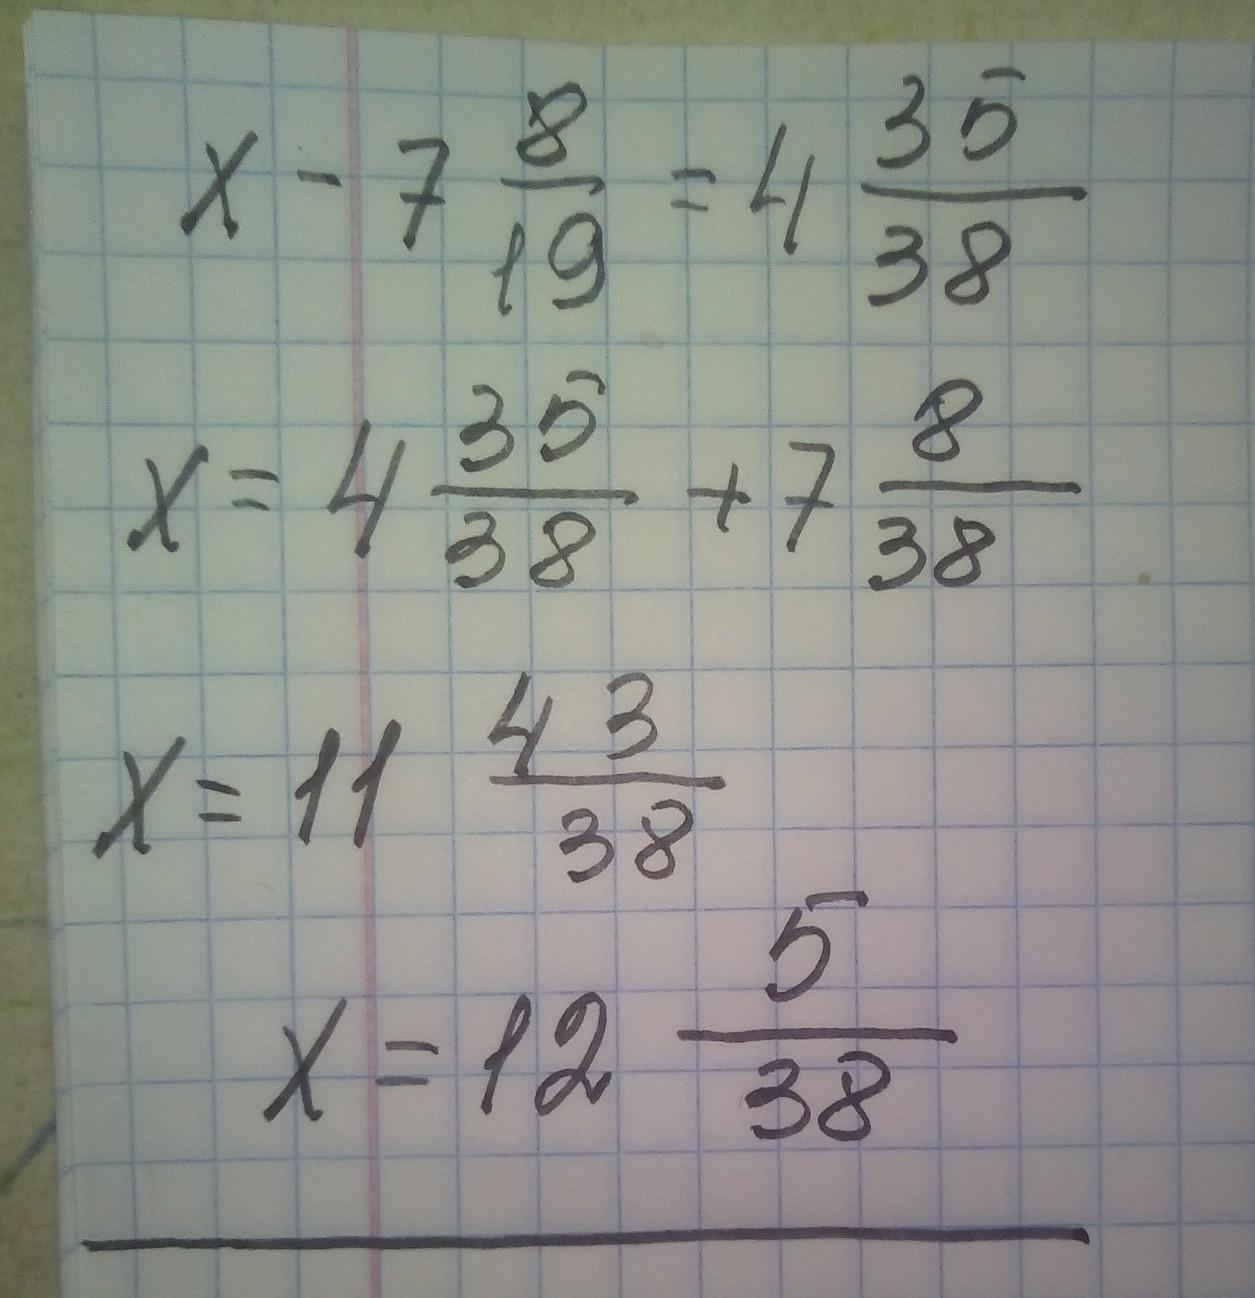 x - 7 8/19 = 4 35/38
x = 4 35/38 + 7 8/38
x = 11 43/38
x = 12 5/38